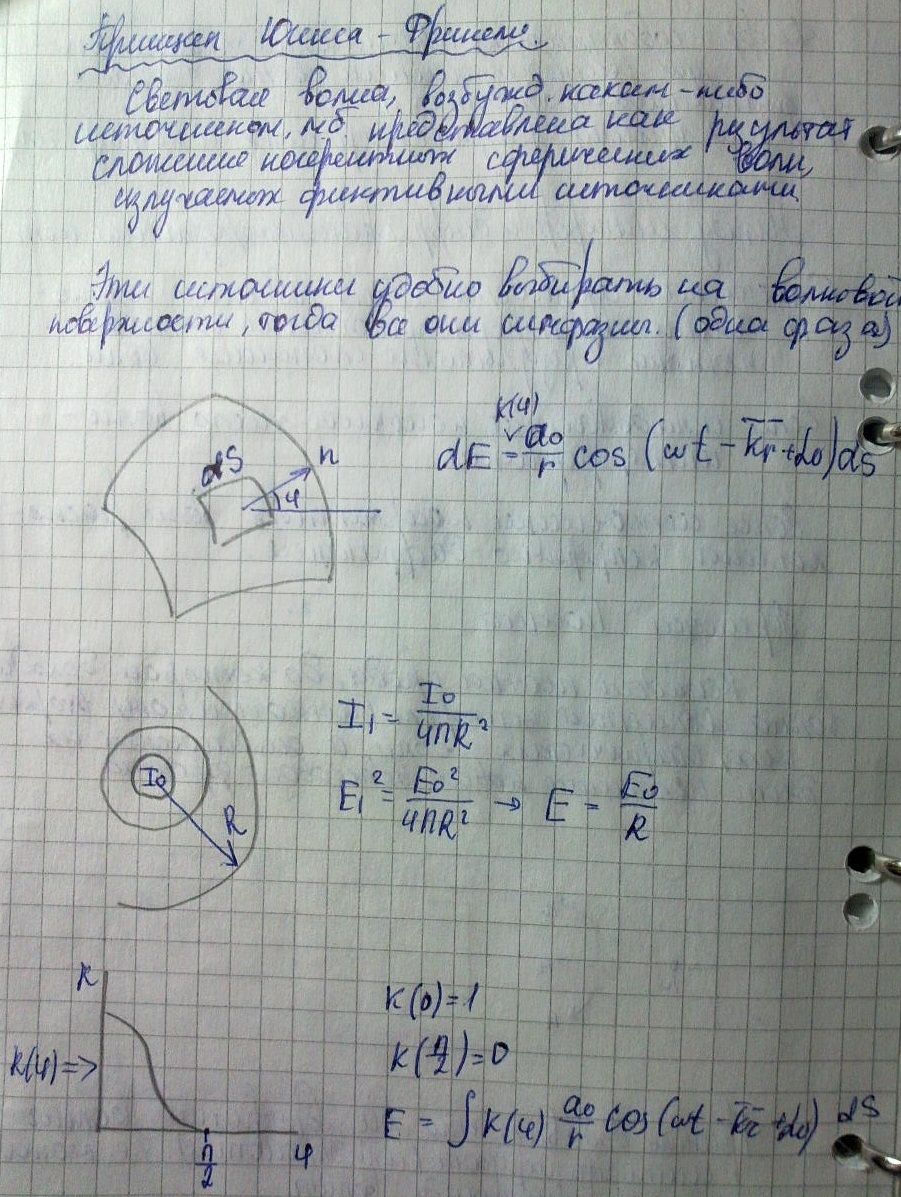 Принцип Юйгенса - Френеля.
Световая волна, возбужд. каким-либо
источником, мб представлена как результат
сложение когерентных сферических волн,
излучаемых фиктивными источниками
Эти источники удобно выбирать на волновой
поверхности, тогда все они синфазны. (одна фаза)
dS n φ
K(φ)
dE = a₀/r cos (ωt - k̅r̅ + α₀) dS
I₀ R
I₁ = I₀/4πR²
E₁² = E₀²/4πR² → E = E₀/R
K
K(φ) =>
π/2 φ
K(0) = 1
K(π/2) = 0
E = ∫ K(φ) a₀/r cos (ωt - k̅r̅ + α₀) dS